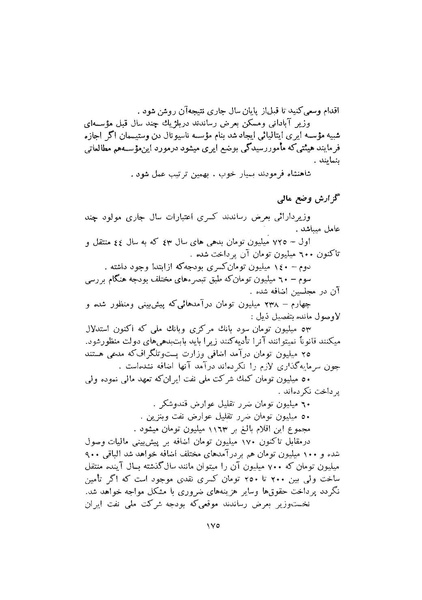 اقدام وسعی کنید تا قبل از پایان سال جاری نتیجه آن روشن شود .
وزیر آبادانی ومسکن بعرض رساندند دربلژیک چند سال قبل مؤسسه‌ای
شبیه مؤسسه ایری ایتالیائی ایجاد شد بنام مؤسسه ناسیونال دن وستیسمان اگر اجازه
فرمایند هیئتی که مأمور رسیدگی بوضع ایری میشود درمورد این مؤسسه هم مطالعاتی
بنمایند .
شاهنشاه فرمودند بسیار خوب . بهمین ترتیب عمل شود .
گزارش وضع مالی
وزیردارائی بعرض رساندند کسری اعتبارات سال جاری مولود چند
عامل میباشد .
اول – ۷۲۵ میلیون تومان بدهی های سال ۴۳ که به سال ۴۴ منتقل و
تاکنون ۶۰۰ میلیون تومان آن پرداخت شده .
دوم – ۱۴۰ میلیون تومان کسری بودجه که از ابتدا وجود داشته .
سوم – ۶۰ میلیون تومان که طبق تبصره‌های مختلف بودجه هنگام بررسی
آن در مجلسین اضافه شده .
چهارم – ۲۳۸ میلیون تومان درآمدهائی که پیش‌بینی ومنظور شده و
لاوصول مانده بتفصیل ذیل :
۵۳ میلیون تومان سود بانک مرکزی وبانک ملی که اکنون استدلال
میکنند قانوناً نمیتوانند آنرا تأدیه کنند زیرا باید بابت بدهی‌های دولت منظور شود.
۲۵ میلیون تومان درآمد اضافی وزارت پست وتلگراف که مدعی هستند
چون سرمایه گذاری لازم را نکرده‌اند درآمد آنها اضافه نشده‌است .
۵۰ میلیون تومان کمک شرکت ملی نفت ایران که تعهد مالی نموده ولی
پرداخت نکرده‌اند .
۶۰ میلیون تومان ضرر تقلیل عوارض قندوشکر .
۵۰ میلیون تومان ضرر تقلیل عوارض نفت وبنزین .
مجموع این اقلام بالغ بر ۱۱۶۳ میلیون تومان میشود .
درمقابل تاکنون ۱۷۰ میلیون تومان اضافه بر پیش‌بینی مالیات وصول
شده و ۱۰۰ میلیون تومان هم بردرآمدهای مختلف اضافه خواهد شد الباقی ۹۰۰
میلیون تومان که ۷۰۰ میلیون آن را میتوان مانند سال گذشته بسال آینده منتقل
ساخت ولی بین ۲۰۰ تا ۲۵۰ تومان کسری نقدی موجود است که اگر تأمین
نگردد پرداخت حقوق‌ها وسایر هزینه‌های ضروری با مشکل مواجه خواهد شد.
نخست‌وزیر بعرض رساندند موقعی که بودجه شرکت ملی نفت ایران
۱۷۵